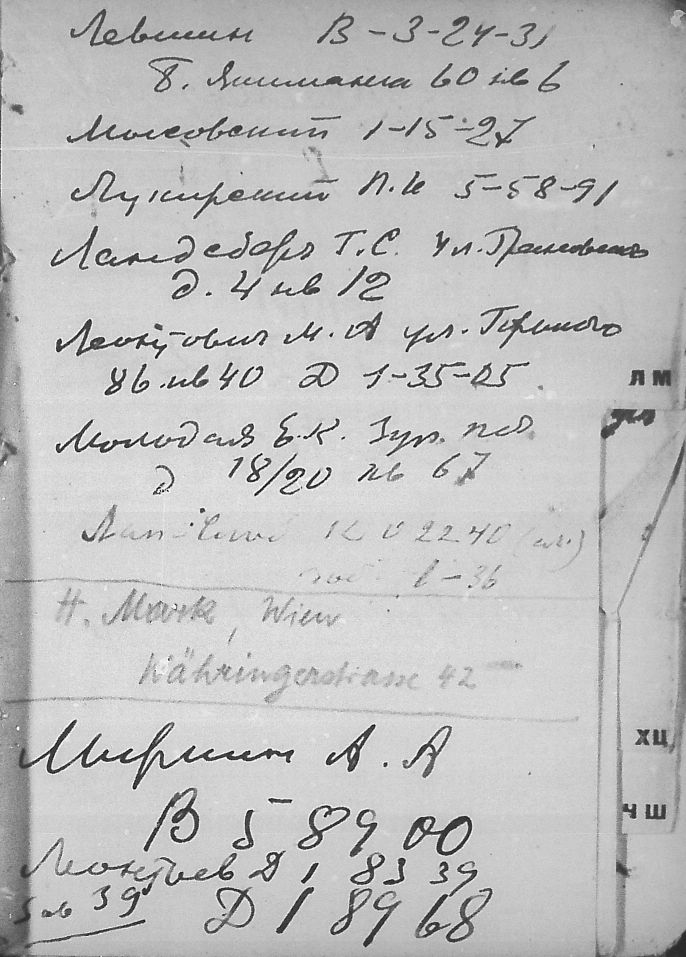 Левшин В-3-24-31
Б. Якиманка 60 кв 6
Московский 1-15-27
Лукирский П.И 5-58-91
Ландсберг Г.С. ул.
д. 4 кв 12
Леонтович М. А ул. Горького
86 кв 40 Д 1-35-05
ЛМ
Молодая Е.К. Зуб.
д 18/20 кв 67
К 0 22 40
1-36
H. Mark, Wien
Währingerstrasse 42
ХЦ
Миркин А. А
В 5 89 00
ЧШ
Леонтьев Д 1 83 39
39
Д 1 89 68